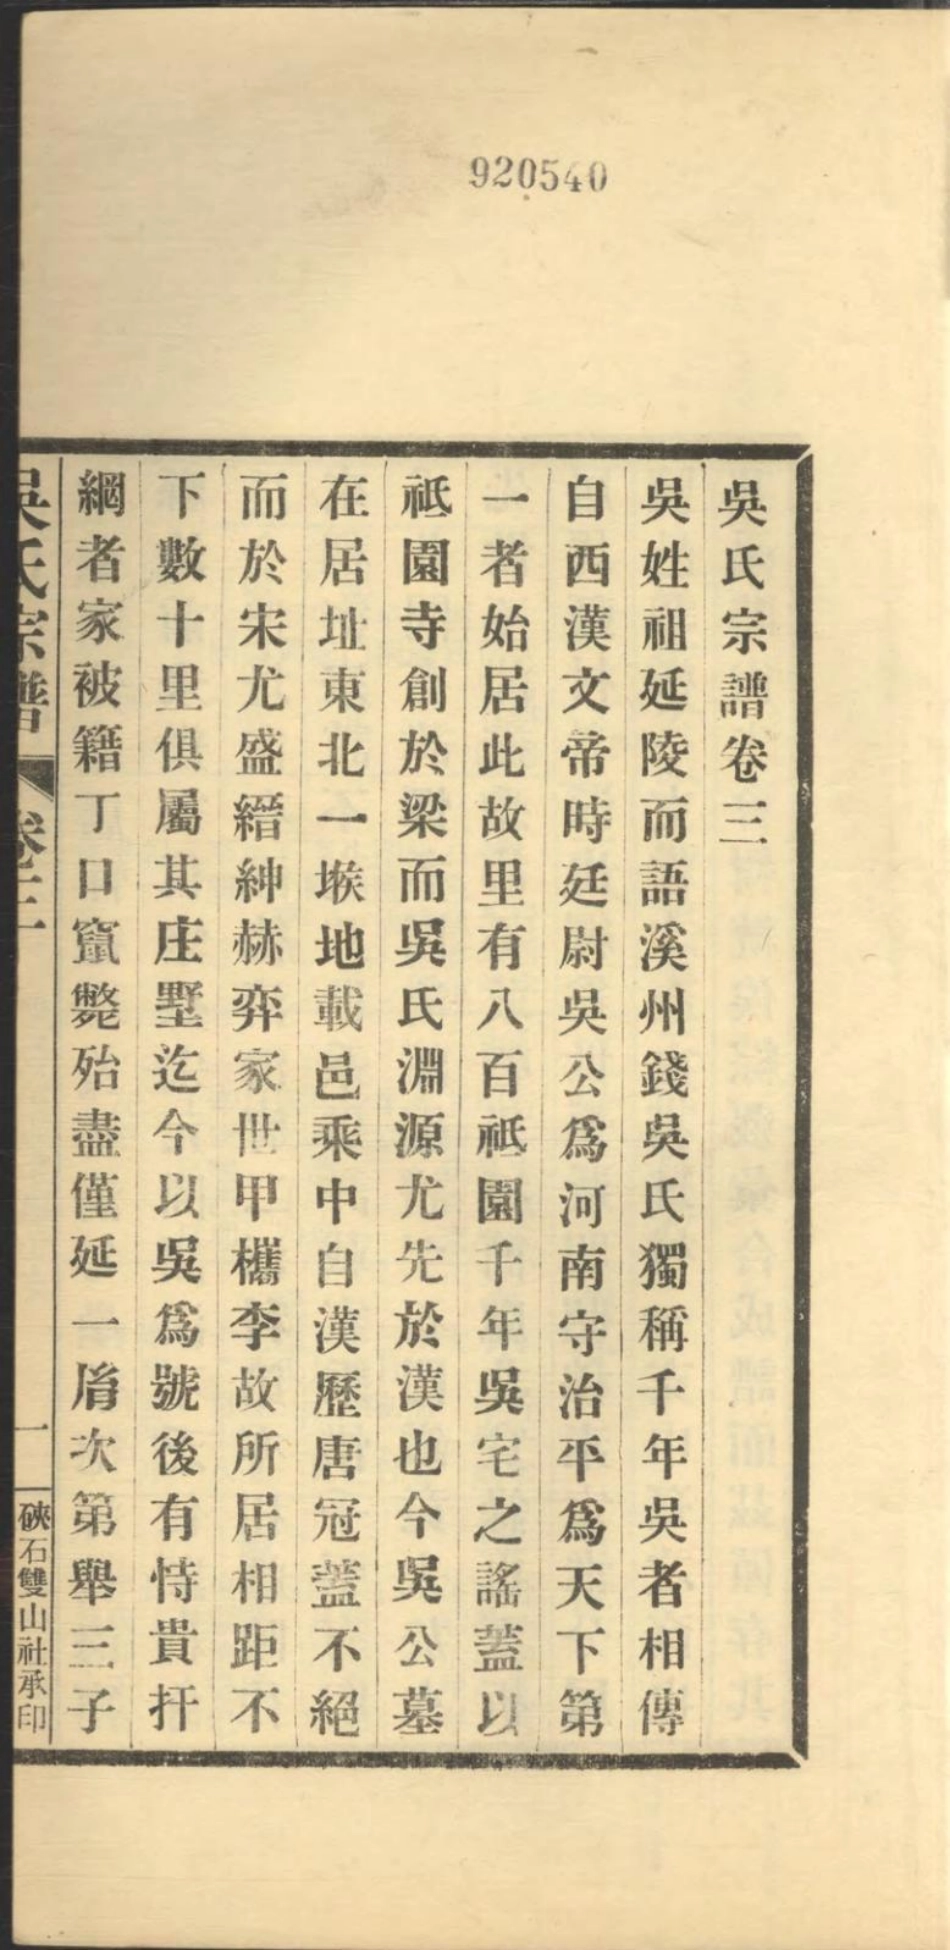 920540
吳氏宗譜卷三
吳姓祖延陵而語溪州錢吳氏獨稱千年吳者相傳
自西漢文帝時廷尉吳公爲河南守治平爲天下第
一者始居此故里有八百祗園千年吳宅之謠蓋以
祗園寺創於梁而吳氏淵源尤先於漢也今吳公墓
在居址東北一堠地載邑乘中自漢歷唐冠蓋不絕
而於宋尤盛縉紳赫弈家世甲檇李故所居相距不
下數十里俱屬其庄墅迄今以吳爲號後有恃貴扞
網者家被籍丁口竄斃殆盡僅延一胤次第舉三子
吳氏宗譜
卷三
一
硤石雙山社承印